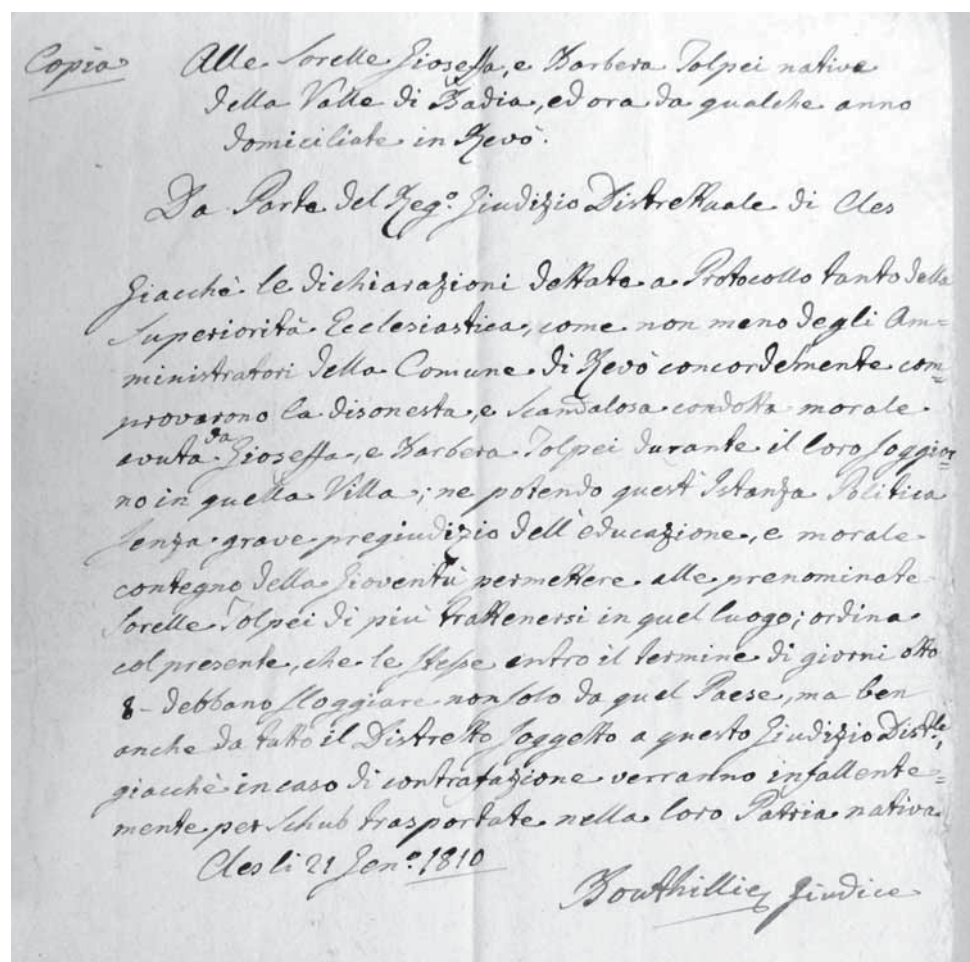 Copia Alle Sorelle Gioseffa, e Barbera Tolpei native
della Valle di Badia, ed ora da qualche anno
domiciliate in Revò.
Da Parte del Reg.º Giudizio Distrettuale di Cles
Giacchè le dichiarazioni dettate a Protocollo tanto della
Superiorità Ecclesiastica, come non meno degli Am=
ministratori della Comune di Revò concordemente com=
provarono la disonesta, e scandalosa condotta morale
avuta da Gioseffa, e Barbera Tolpei durante il loro soggior=
no in quella Villa; ne potendo quest'Istanza Politica
senza grave pregiudizio dell'educazione, e morale
contegno della Gioventù permettere alle prenominate
Sorelle Tolpei di più trattenersi in quel luogo; ordina
col presente, che le stesse entro il termine di giorni otto
8- debbano sloggiare non solo da quel Paese, ma ben
anche da tutto il Distretto soggetto a questo Giudizio Dist.le,
giacchè in caso di contrafazione verranno infallente=
mente per Schub trasportate nella loro Patria nativa
Cles li 21 Gen.º 1810
Bouthillier Giudice